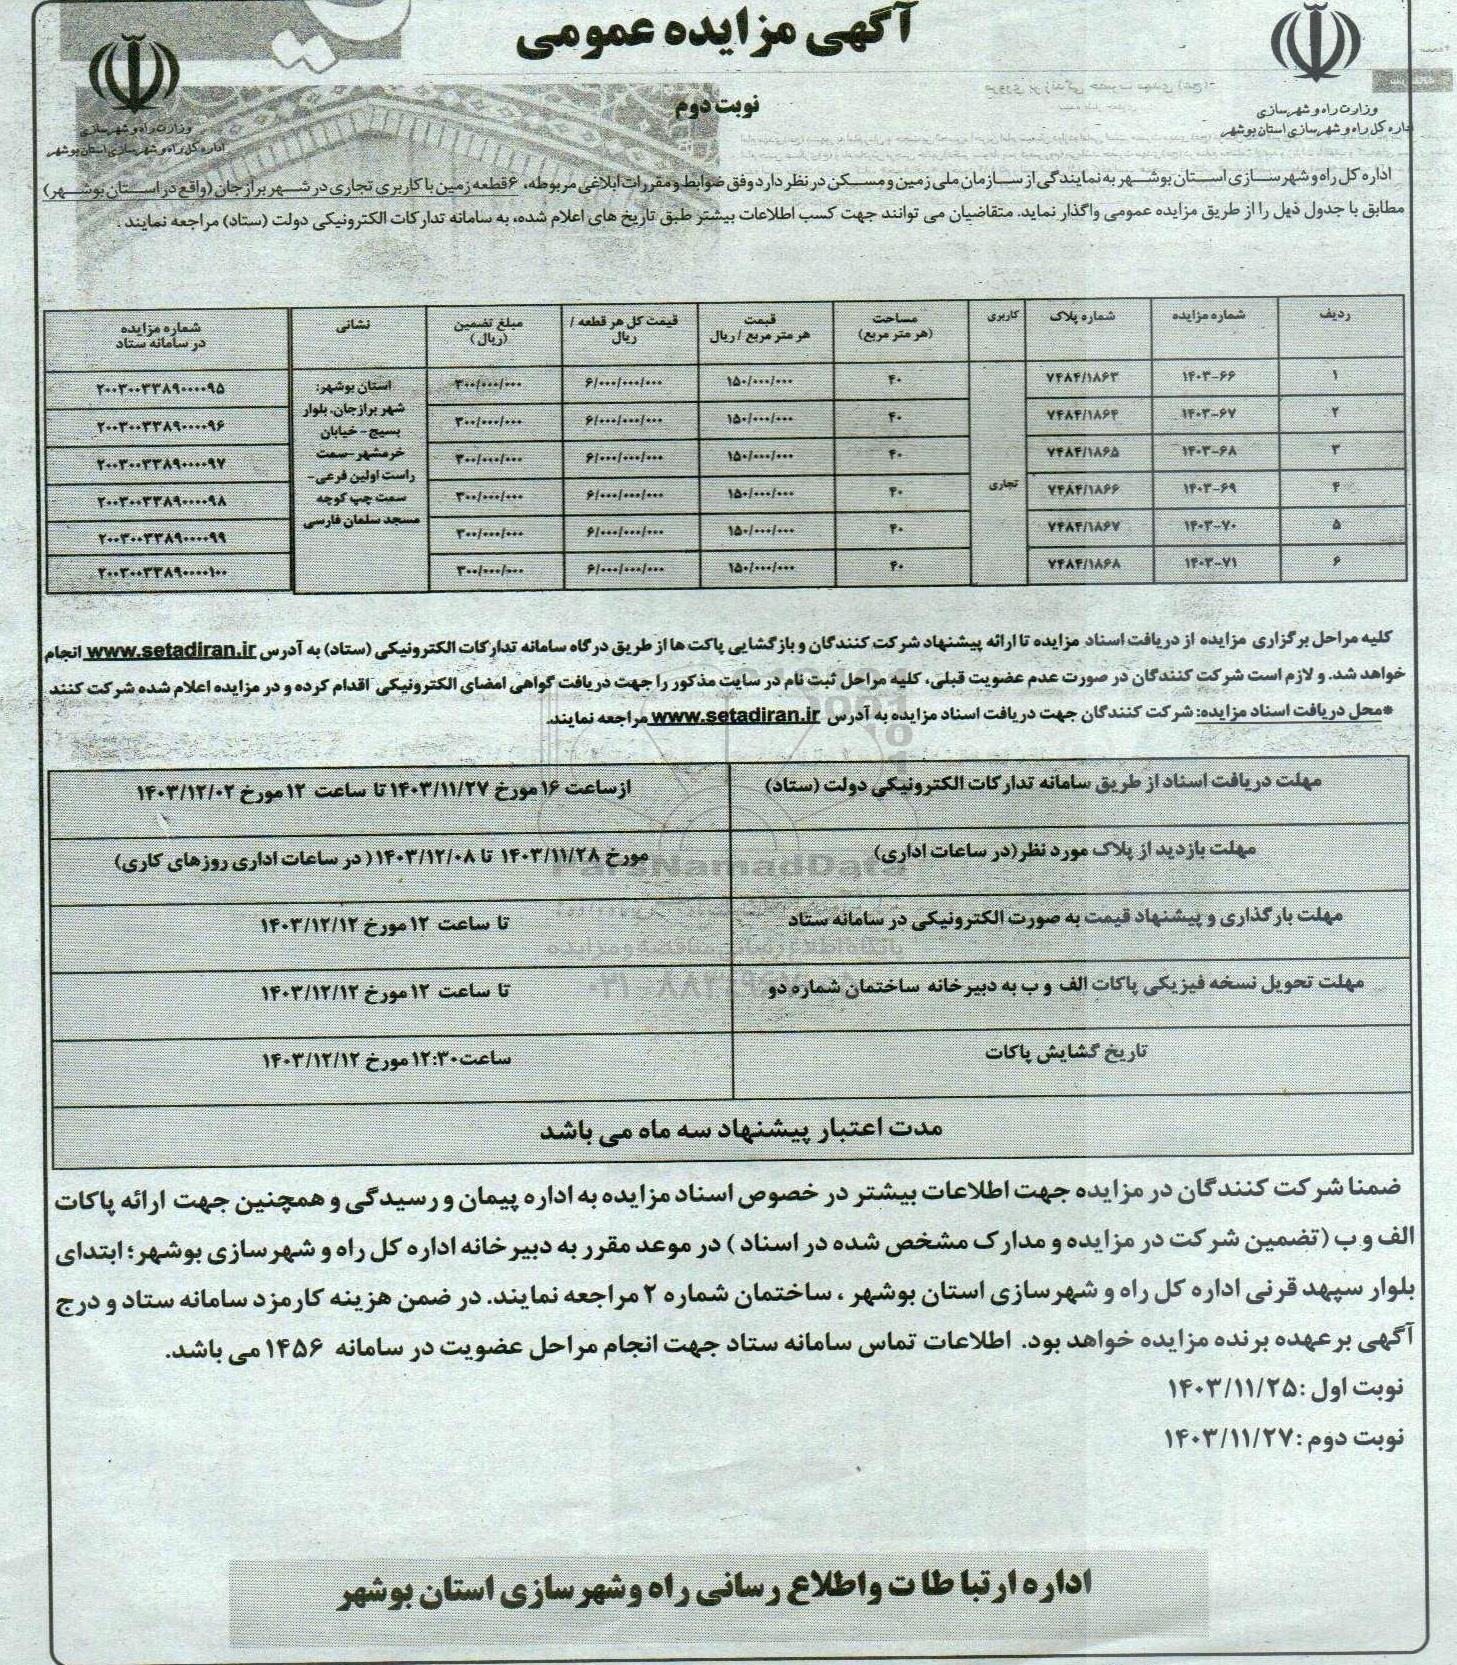 آگهی مزایده عمومی
نوبت دوم
وزارت راه و شهرسازی
اداره کل راه و شهرسازی استان بوشهر
وزارت راه و شهرسازی
اداره کل راه و شهرسازی استان بوشهر
اداره کل راه و شهرسازی استان بوشهر به نمایندگی از سازمان ملی زمین و مسکن در نظر دارد وفق ضوابط و مقررات ابلاغی مربوطه، ۶ قطعه زمین با کاربری تجاری در شهر برازجان (واقع در استان بوشهر)
مطابق با جدول ذیل را از طریق مزایده عمومی واگذار نماید. متقاضیان می توانند جهت کسب اطلاعات بیشتر طبق تاریخ های اعلام شده، به سامانه تدارکات الکترونیکی دولت (ستاد) مراجعه نمایند.
ردیف شماره مزایده شماره پلاک کاربری مساحت (هر متر مربع) قیمت هر متر مربع / ریال قیمت کل هر قطعه / ریال مبلغ تضمین (ریال) نشانی شماره مزایده در سامانه ستاد
۱ ۱۴۰۳-۶۶ ۷۴۸۴/۱۸۶۳ ۴۰ ۱۵۰/۰۰۰/۰۰۰ ۶/۰۰۰/۰۰۰/۰۰۰ ۳۰۰/۰۰۰/۰۰۰ ۲۰۰۳۰۰۳۳۸۹۰۰۰۰۹۵
۲ ۱۴۰۳-۶۷ ۷۴۸۴/۱۸۶۴ ۴۰ ۱۵۰/۰۰۰/۰۰۰ ۶/۰۰۰/۰۰۰/۰۰۰ ۳۰۰/۰۰۰/۰۰۰ ۲۰۰۳۰۰۳۳۸۹۰۰۰۰۹۶
۳ ۱۴۰۳-۶۸ ۷۴۸۴/۱۸۶۵ ۴۰ ۱۵۰/۰۰۰/۰۰۰ ۶/۰۰۰/۰۰۰/۰۰۰ ۳۰۰/۰۰۰/۰۰۰ ۲۰۰۳۰۰۳۳۸۹۰۰۰۰۹۷
۴ ۱۴۰۳-۶۹ ۷۴۸۴/۱۸۶۶ ۴۰ ۱۵۰/۰۰۰/۰۰۰ ۶/۰۰۰/۰۰۰/۰۰۰ ۳۰۰/۰۰۰/۰۰۰ ۲۰۰۳۰۰۳۳۸۹۰۰۰۰۹۸
۵ ۱۴۰۳-۷۰ ۷۴۸۴/۱۸۶۷ ۴۰ ۱۵۰/۰۰۰/۰۰۰ ۶/۰۰۰/۰۰۰/۰۰۰ ۳۰۰/۰۰۰/۰۰۰ ۲۰۰۳۰۰۳۳۸۹۰۰۰۰۹۹
۶ ۱۴۰۳-۷۱ ۷۴۸۴/۱۸۶۸ ۴۰ ۱۵۰/۰۰۰/۰۰۰ ۶/۰۰۰/۰۰۰/۰۰۰ ۳۰۰/۰۰۰/۰۰۰ ۲۰۰۳۰۰۳۳۸۹۰۰۰۱۰۰
تجاری
استان بوشهر:
شهر برازجان، بلوار
بسیج - خیابان
خرمشهر - سمت
راست اولین فرعی -
سمت چپ کوچه
مسجد سلمان فارسی
کلیه مراحل برگزاری مزایده از دریافت اسناد مزایده تا ارائه پیشنهاد شرکت کنندگان و بازگشایی پاکت ها از طریق درگاه سامانه تدارکات الکترونیکی (ستاد) به آدرس www.setadiran.ir انجام
خواهد شد. و لازم است شرکت کنندگان در صورت عدم عضویت قبلی، کلیه مراحل ثبت نام در سایت مذکور را جهت دریافت گواهی امضای الکترونیکی اقدام کرده و در مزایده اعلام شده شرکت کنند
*محل دریافت اسناد مزایده: شرکت کنندگان جهت دریافت اسناد مزایده به آدرس www.setadiran.ir مراجعه نمایند.
مهلت دریافت اسناد از طریق سامانه تدارکات الکترونیکی دولت (ستاد) از ساعت ۱۶ مورخ ۱۴۰۳/۱۱/۲۷ تا ساعت ۱۲ مورخ ۱۴۰۳/۱۲/۰۲
مهلت بازدید از پلاک مورد نظر(در ساعات اداری) مورخ ۱۴۰۳/۱۱/۲۸ تا ۱۴۰۳/۱۲/۰۸ ( در ساعات اداری روزهای کاری)
مهلت بارگذاری و پیشنهاد قیمت به صورت الکترونیکی در سامانه ستاد تا ساعت ۱۲ مورخ ۱۴۰۳/۱۲/۱۲
مهلت تحویل نسخه فیزیکی پاکات الف و ب به دبیرخانه ساختمان شماره دو تا ساعت ۱۲ مورخ ۱۴۰۳/۱۲/۱۲
تاریخ گشایش پاکات ساعت ۱۲:۳۰ مورخ ۱۴۰۳/۱۲/۱۲
مدت اعتبار پیشنهاد سه ماه می باشد
ParsNamadData
پایگاه اطلاع رسانی مناقصه و مزایده
ضمنا شرکت کنندگان در مزایده جهت اطلاعات بیشتر در خصوص اسناد مزایده به اداره پیمان و رسیدگی و همچنین جهت ارائه پاکات
الف و ب (تضمین شرکت در مزایده و مدارک مشخص شده در اسناد ) در موعد مقرر به دبیرخانه اداره کل راه و شهرسازی بوشهر؛ ابتدای
بلوار سپهد قرنی اداره کل راه و شهرسازی استان بوشهر ، ساختمان شماره ۲ مراجعه نمایند. در ضمن هزینه کارمزد سامانه ستاد و درج
آگهی بر عهده برنده مزایده خواهد بود. اطلاعات تماس سامانه ستاد جهت انجام مراحل عضویت در سامانه ۱۴۵۶ می باشد.
نوبت اول :۱۴۰۳/۱۱/۲۵
نوبت دوم :۱۴۰۳/۱۱/۲۷
اداره ارتباطات و اطلاع رسانی راه و شهرسازی استان بوشهر